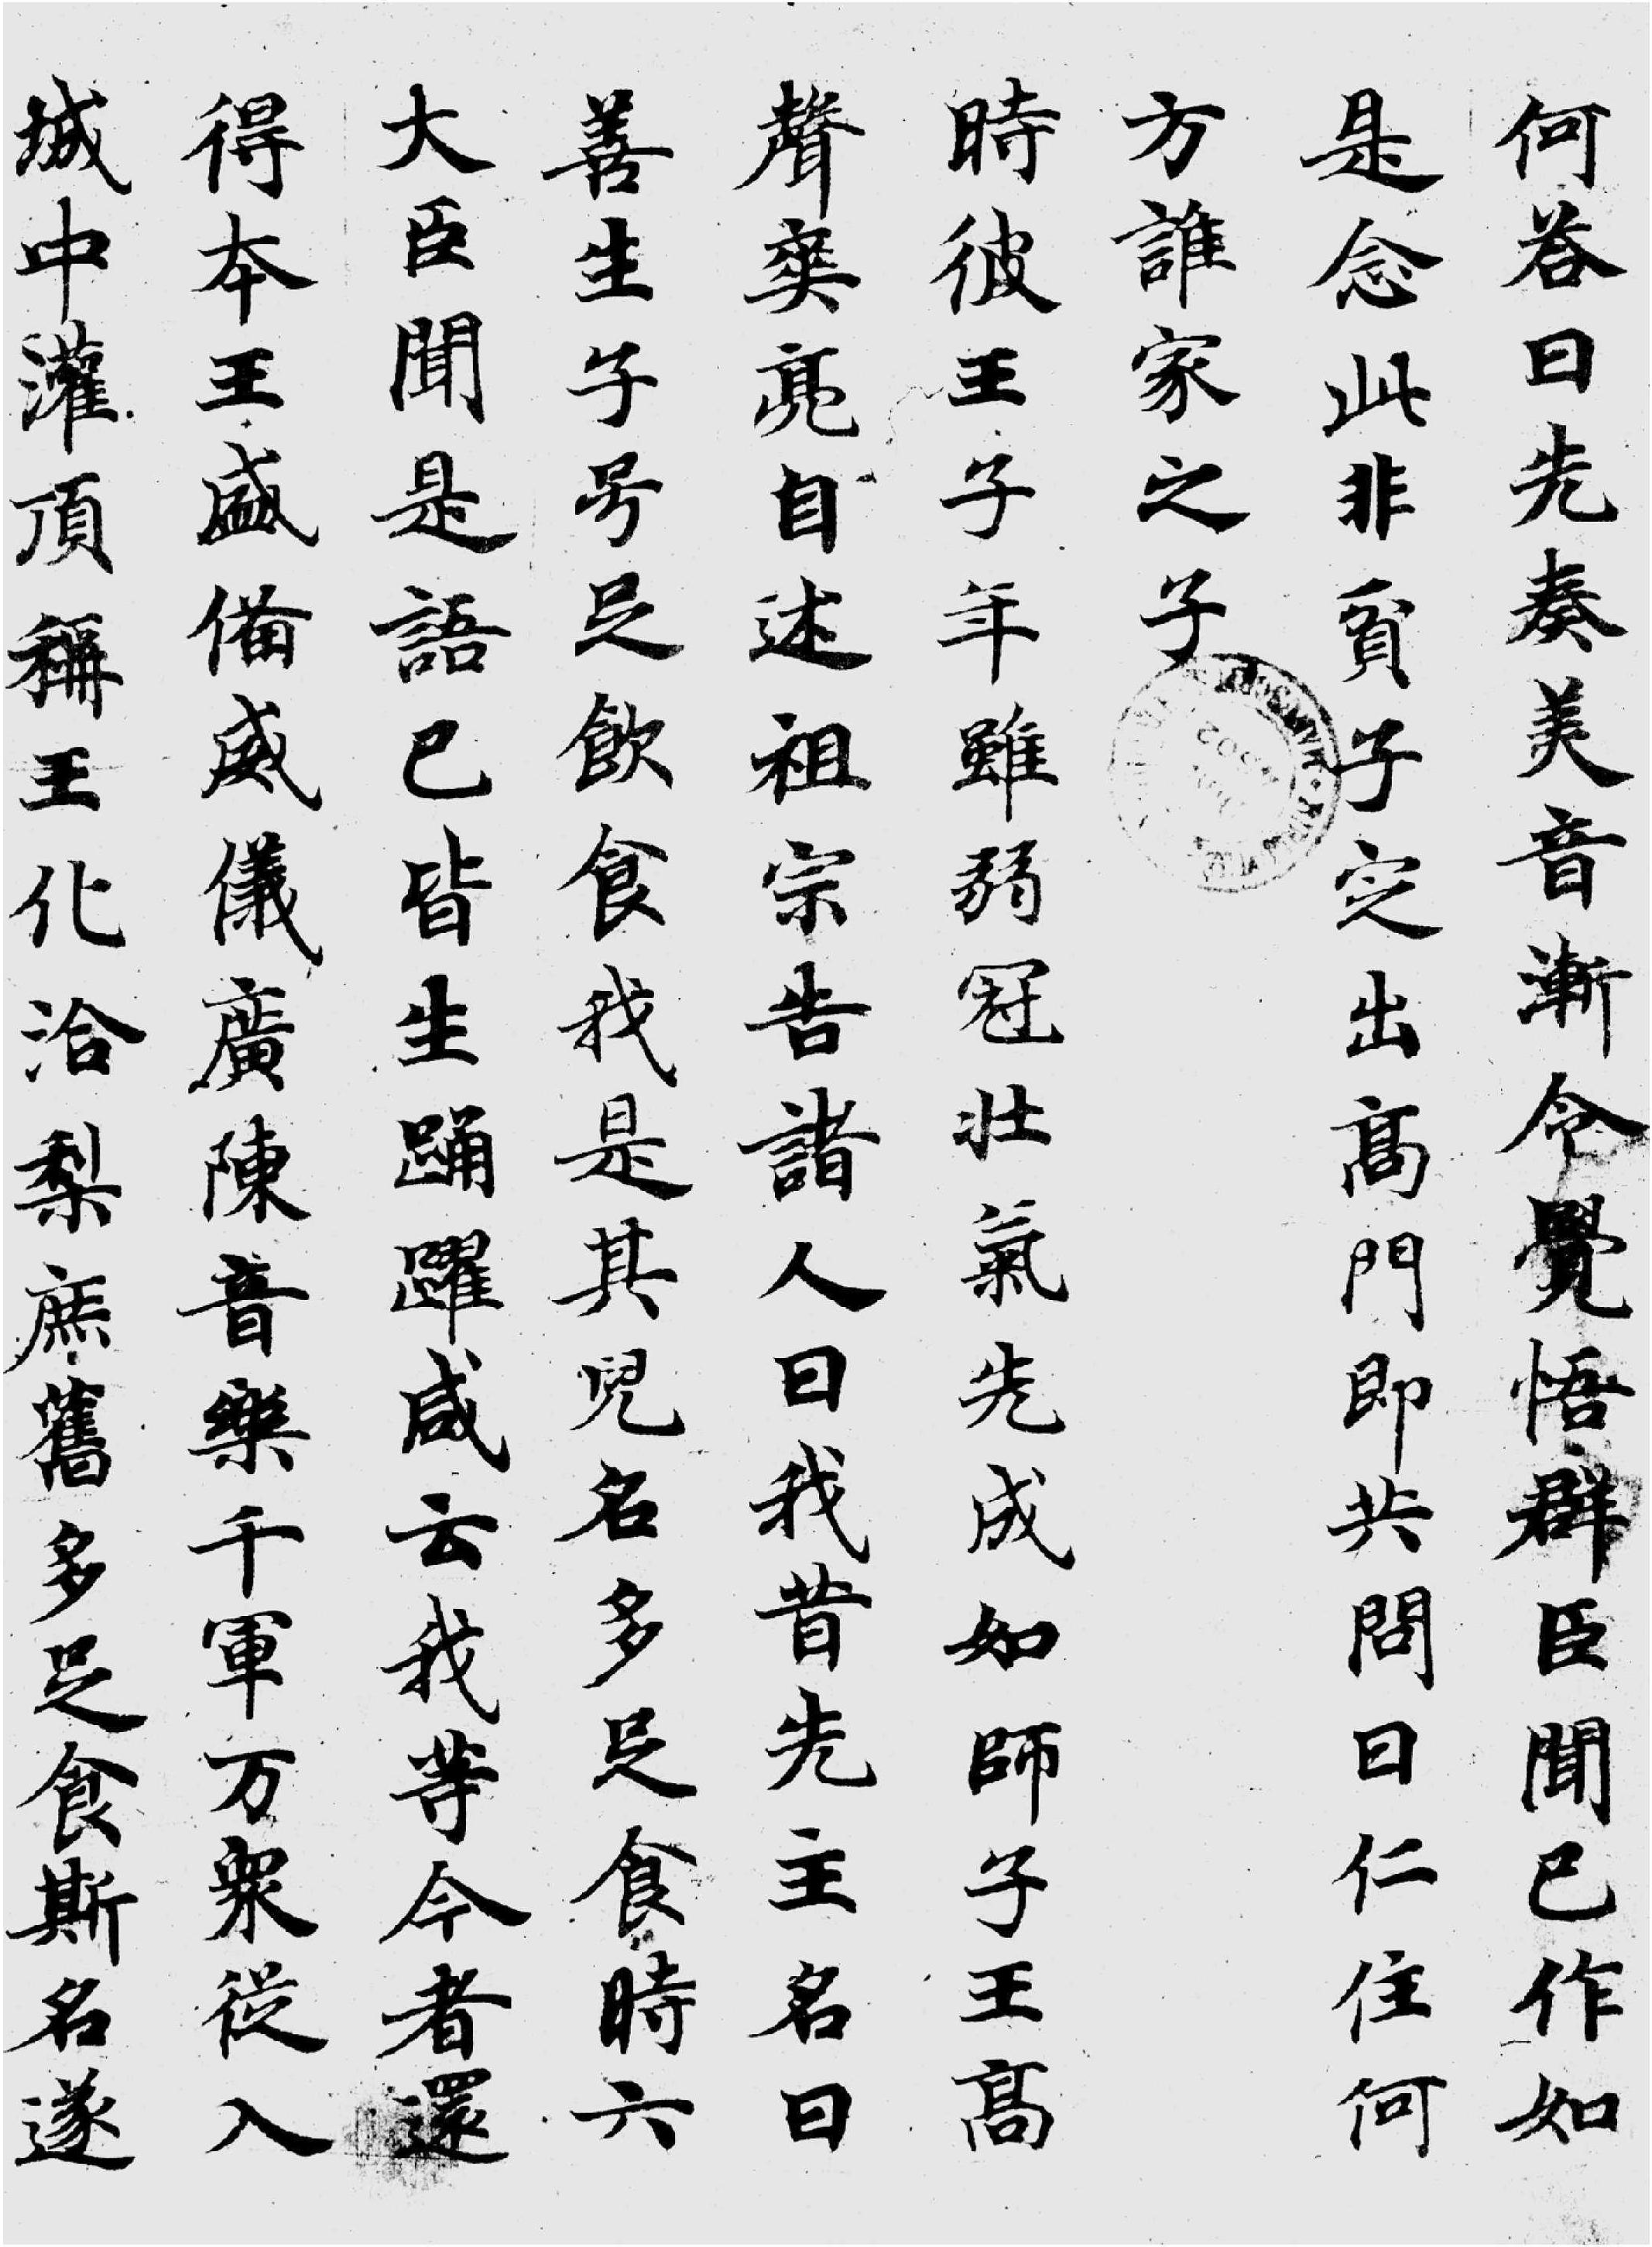 何荅曰先奏美音漸令覺悟群臣聞已作如
是念此非貧子定出髙門即共問曰仁住何
方誰家之子
時彼王子年雖弱冠壯氣先成如師子王髙
聲奕亮自述祖宗告諸人曰我昔先主名曰
善生子号足飲食我是其兒名多足食時六
大臣聞是語已皆生踊躍咸云我等今者還
得本王盛備威儀廣陳音樂千軍万衆從入
城中灌頂稱王化洽梨庶舊多足食斯名遂